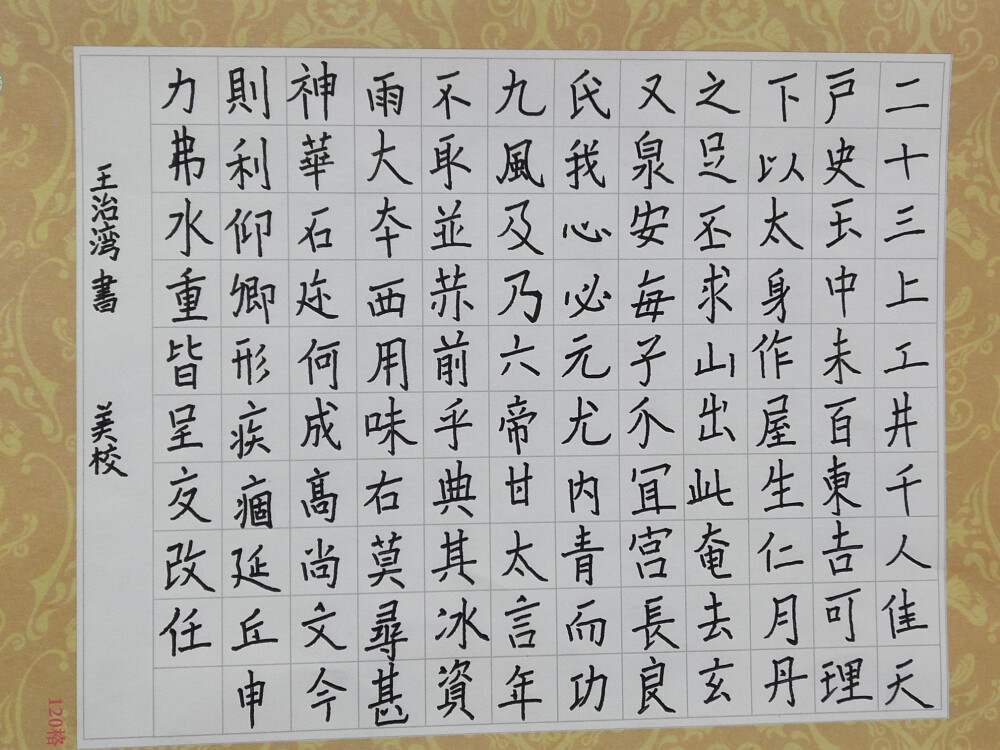 二十三上工井千人佳天
戸史玉中未百東吉可理
下以太身作屋生仁月丹
之足丕求山出此奄去玄
又泉安每子介宜宫長良
氏我心必元尤内青而功
九風及乃六帝甘太言年
不耴並恭前乎典其冰資
雨大夲西用味右莫尋甚
神華石迩何成高尚文今
則利仰卿形疾痼延丘申
力弗水重皆呈友改任
王治湾書 美校
120格